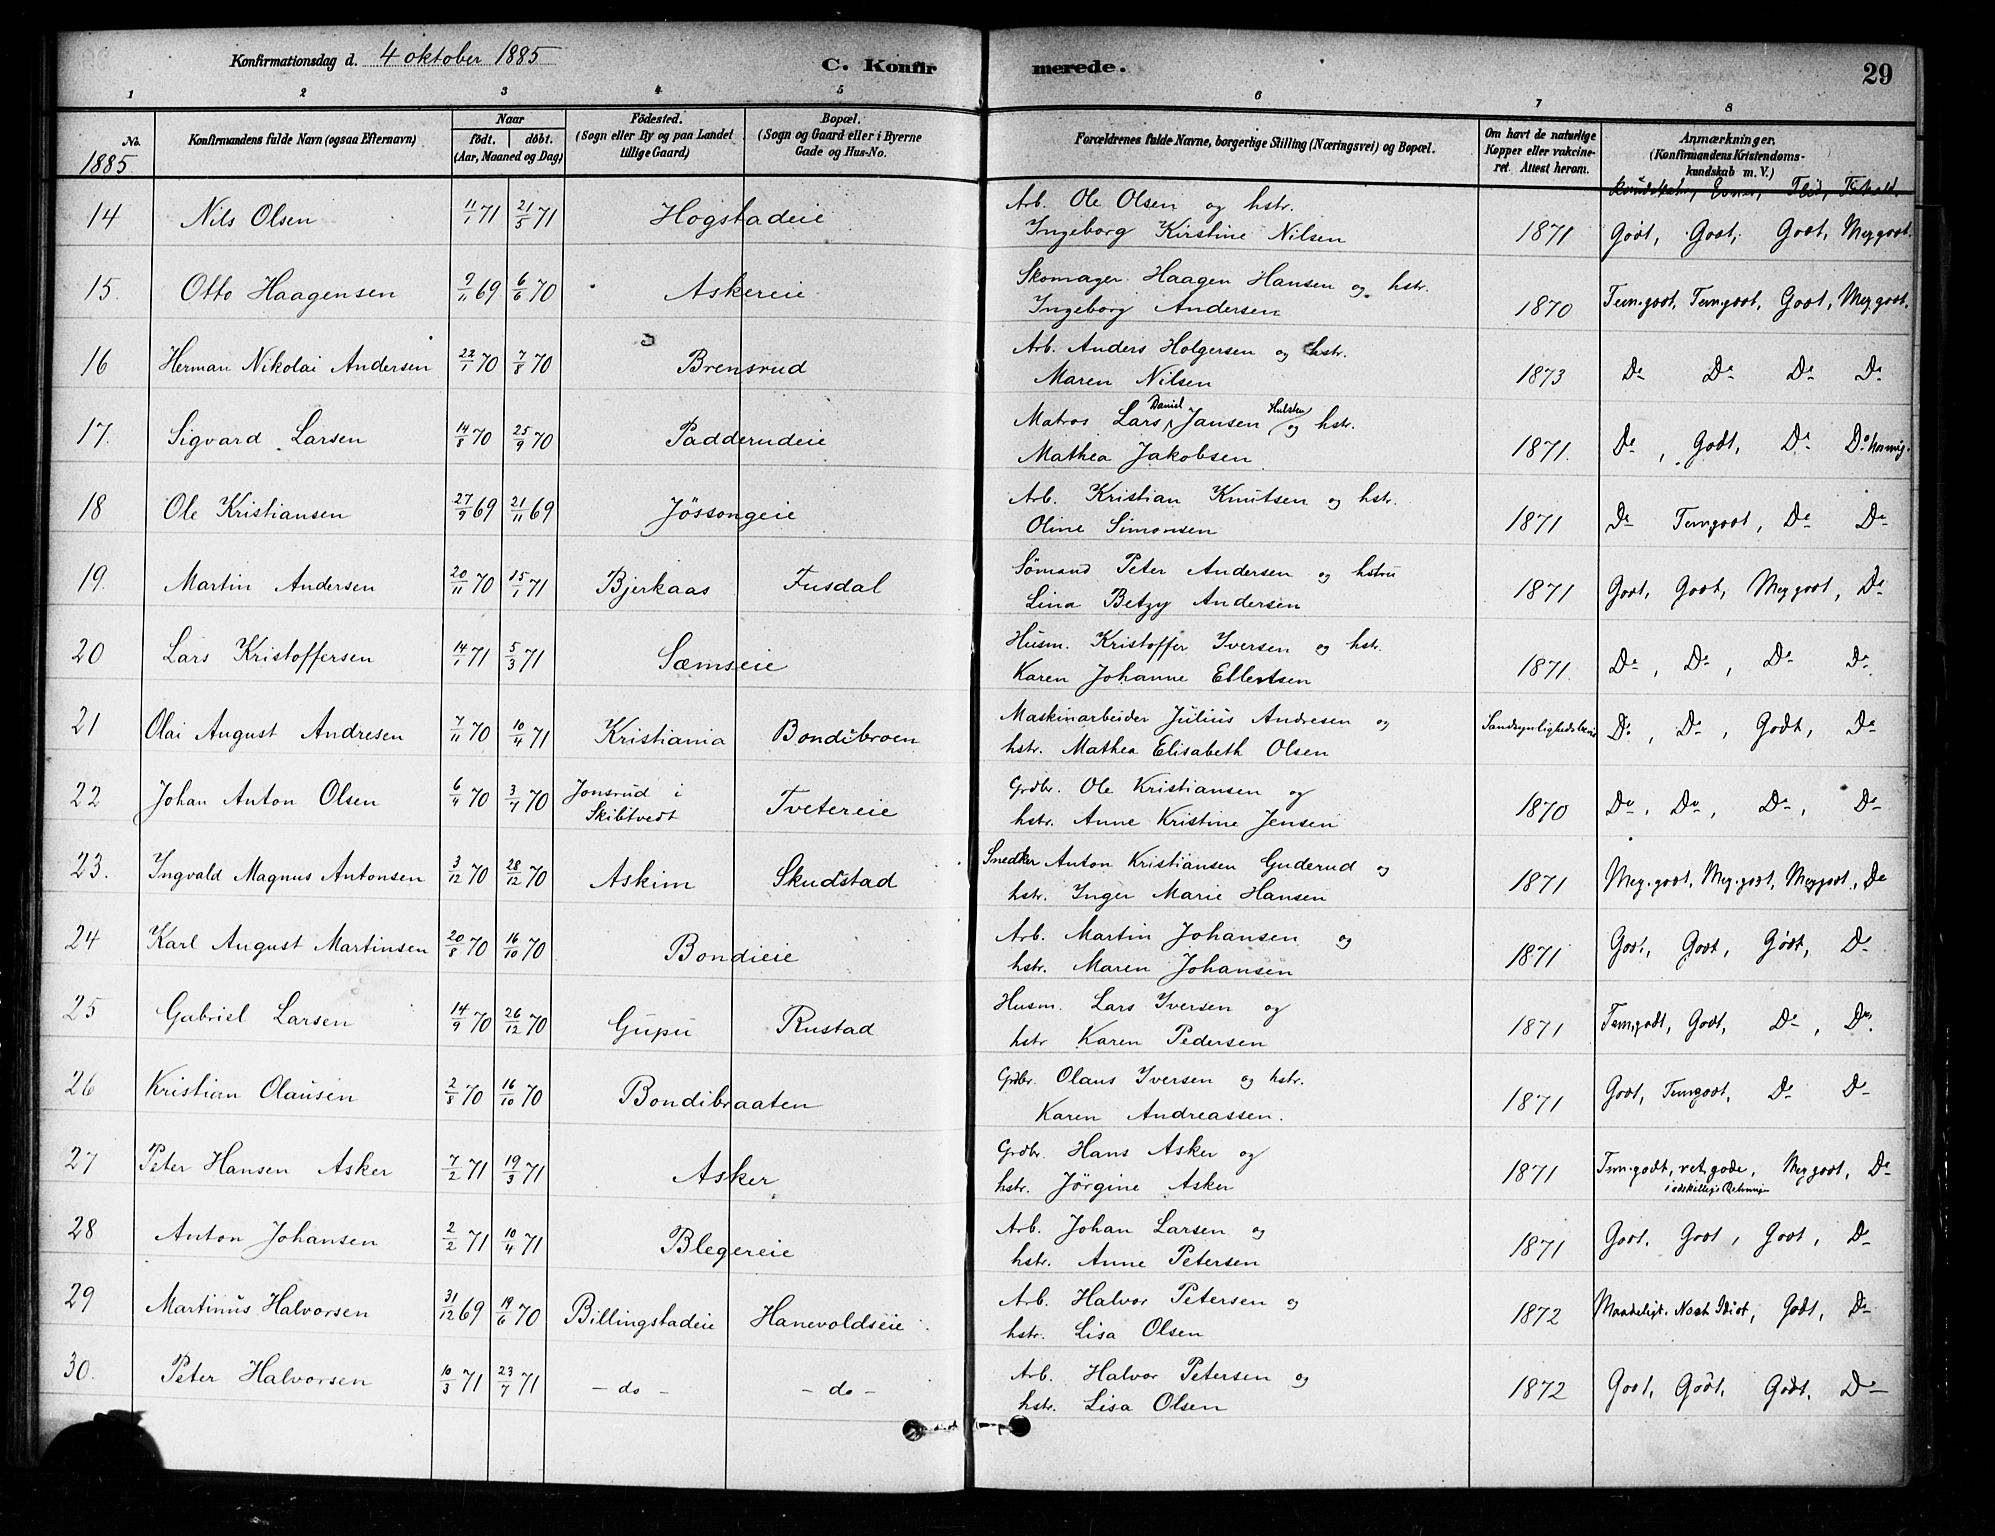 Konfirmationsdag d. 4 oktober 1885
C. Konfirmerede.
29
1 2 3 4 5 6 7 8
No. 1885
Konfirmandens fulde Navn (ogsaa Efternavn)
Naar født. døbt. (Aar, Maaned og Dag)
Fødested. (Sogn eller By og paa Landet tillige Gaard)
Bopæl. (Sogn og Gaard eller i Byerne Gade og Hus-No.)
Forældrenes fulde Navne, borgerlige Stilling (Næringsvei) og Bopæl.
Om havt de naturlige Kopper eller vakcineret. Attest herom.
Anmærkninger. (Konfirmandens Kristendomskundskab m. V.)
Kundskab, Evner, Flid, Forhold.
14 Nils Olsen 11/1 71 21/5 71 Hogstadeie Arb. Ole Olsen og hstr. Ingeborg Kirstine Nilsen 1871 Godt, Godt, Godt, Meg.godt.
15. Otto Haagensen 9/11 69 6/6 70 Askereie Skomager Haagen Hansen og hstr. Ingeborg Andersen 1870 Tem.godt, Tem.godt, Godt, Meg.godt.
16 Herman Nikolai Andersen 22/1 70 7/8 70 Brensrud Arb. Anders Holgersen og hstr. Maren Nilsen 1873 Do Do Do Do
17. Sigvard Larsen 14/8 70 25/9 70 Padderudeie Matros Lars Daniel Jansen Hulsten og hstr. Mathea Jakobsen 1871. Do, Godt, Do Do
18 Ole Kristiansen 27/9 69 21/11 69 Jøssongeie Arb. Kristian Knutsen og hstr. Oline Simonsen 1871 Do Tem.godt, Do Do
19. Martin Andersen 20/11 70 15/1 71 Bjerkaas Fusdal Sømand Peter Andersen og hstru Lina Betzy Andersen 1871 Godt, Godt, Meg godt, Do
20 Lars Kristoffersen 14/1 71 5/3 71 Sæmseie Husm. Kristoffer Iversen og hstr. Karen Johanne Ellertsen 1871. Do, Do, Do Do
21 Olai August Andresen 7/11 70 10/4 71 Kristiania Bondibroen Maskinarbeider Julius Andresen og hstr. Mathea Elisabeth Olsen Sandsynlighedsbevis Do, Do, Godt, Do
22 Johan Anton Olsen 6/4 70 3/7 70 Jonsrud i Skibtvedt Tvetereie Grdbr. Ole Kristiansen og hstr. Anne Kristine Jensen 1870 Do, Do, Do, Do
23. Ingvald Magnus Antonsen 3/12 70 28/12 70 Askim Skudstad Snedker Anton Kristiansen Guderud og hstr. Inger Marie Hansen 1871 Meg.godt, Meg.godt, Meg godt, Do
24 Karl August Martinsen 20/8 70 16/10 70 Bondieie Arb. Martin Johansen og hstr. Maren Johansen 1871 Godt, Godt, Godt, Do
25 Gabriel Larsen 14/9 70 26/12 70 Gupu Rustad Husm. Lars Iversen og hstr Karen Pedersen 1871 Tem.godt, Godt, Do, Do.
26 Kristian Olausen 2/8 70 16/10 70 Bondibraaten Grdbr. Olaus Iversen og hstr. Karen Andreassen. 1871 Godt, Temgodt, Do Do
27 Peter Hansen Asker 7/2 71 19/3 71 Asker Grdbr. Hans Asker og hstr. Jørgine Asker 1871 Tem.godt, ret gode, i adskillige Retninger Meg godt, Do
28 Anton Johansen 2/2 71 10/4 71 Blegereie Arb. Johan Larsen og hstr. Anne Petersen 1871 Godt. Godt, Godt, Do
29 Martinus Halvorsen 31/12 69 19/6 70 Billingstadeie Hanevoldseie Arb. Halvor Petersen og hstr. Lisa Olsen 1872 Maadeligt. Næst Idiot, Godt, Do
30. Peter Halvorsen 10/3 71 23/7 71 - do - - do - Arb. Halvor Petersen og hstr. Lisa Olsen 1872 Godt, Godt, Godt, Do